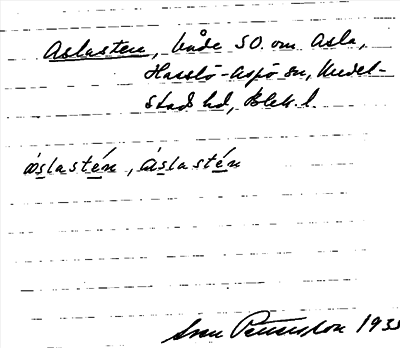 Aslasten, både SO. om Asla,
Hasslö-Aspö sn, Medel-
stads hd, Blek. l.
åslastén, áslastén
Sven Petersson 193